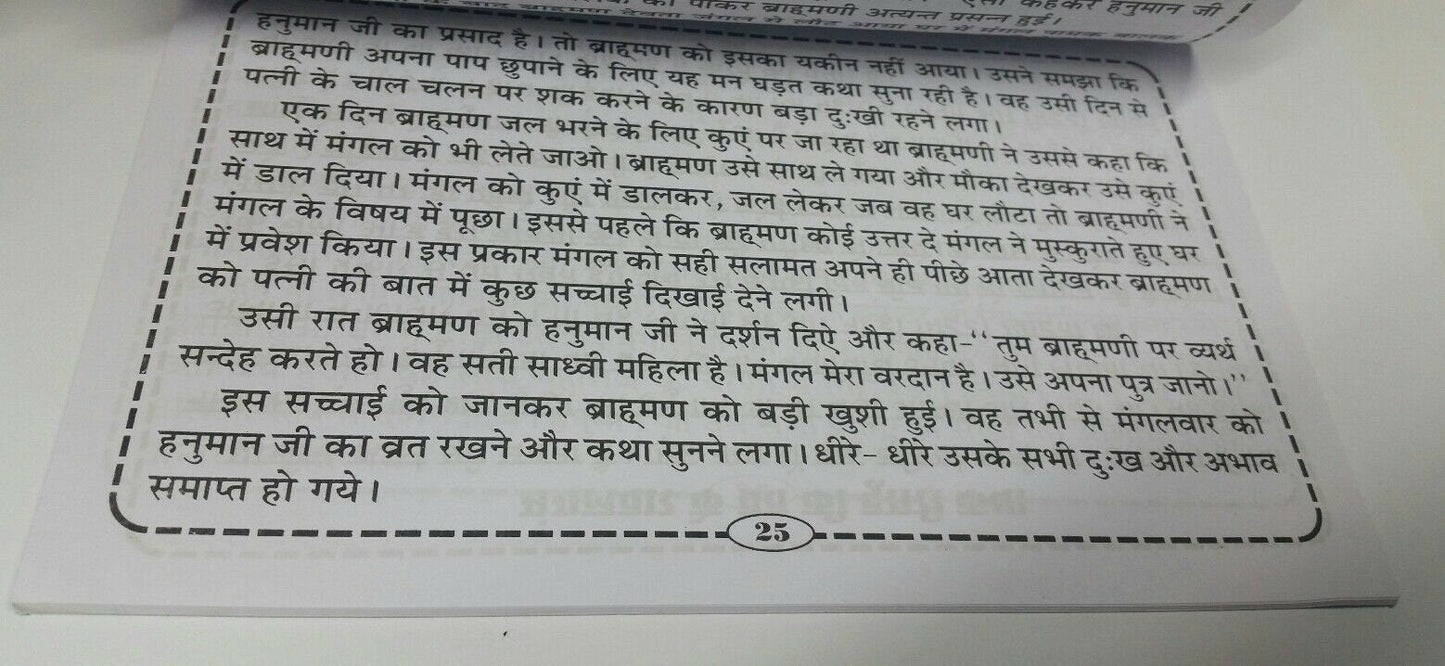 पाकर ब्राह्मणी अत्यन्त प्रसन्न हुई।
कहकर हनुमान जी
हनुमान जी का प्रसाद है। तो ब्राह्मण को इसका यकीन नहीं आया। उसने समझा कि
ब्राह्मणी अपना पाप छुपाने के लिए यह मन घड़त कथा सुना रही है। वह उसी दिन से
पत्नी के चाल चलन पर शक करने के कारण बड़ा दुःखी रहने लगा।
एक दिन ब्राह्मण जल भरने के लिए कुएं पर जा रहा था ब्राह्मणी ने उससे कहा कि
साथ में मंगल को भी लेते जाओ। ब्राह्मण उसे साथ ले गया और मौका देखकर उसे कुएं
में डाल दिया। मंगल को कुएं में डालकर, जल लेकर जब वह घर लौटा तो ब्राह्मणी ने
मंगल के विषय में पूछा। इससे पहले कि ब्राह्मण कोई उत्तर दे मंगल ने मुस्कुराते हुए घर
में प्रवेश किया। इस प्रकार मंगल को सही सलामत अपने ही पीछे आता देखकर ब्राह्मण
को पत्नी की बात में कुछ सच्चाई दिखाई देने लगी।
उसी रात ब्राह्मण को हनुमान जी ने दर्शन दिऐ और कहा-‘‘तुम ब्राह्मणी पर व्यर्थ
सन्देह करते हो। वह सती साध्वी महिला है। मंगल मेरा वरदान है। उसे अपना पुत्र जानो।’’
इस सच्चाई को जानकर ब्राह्मण को बड़ी खुशी हुई। वह तभी से मंगलवार को
हनुमान जी का व्रत रखने और कथा सुनने लगा। धीरे- धीरे उसके सभी दुःख और अभाव
समाप्त हो गये।
25